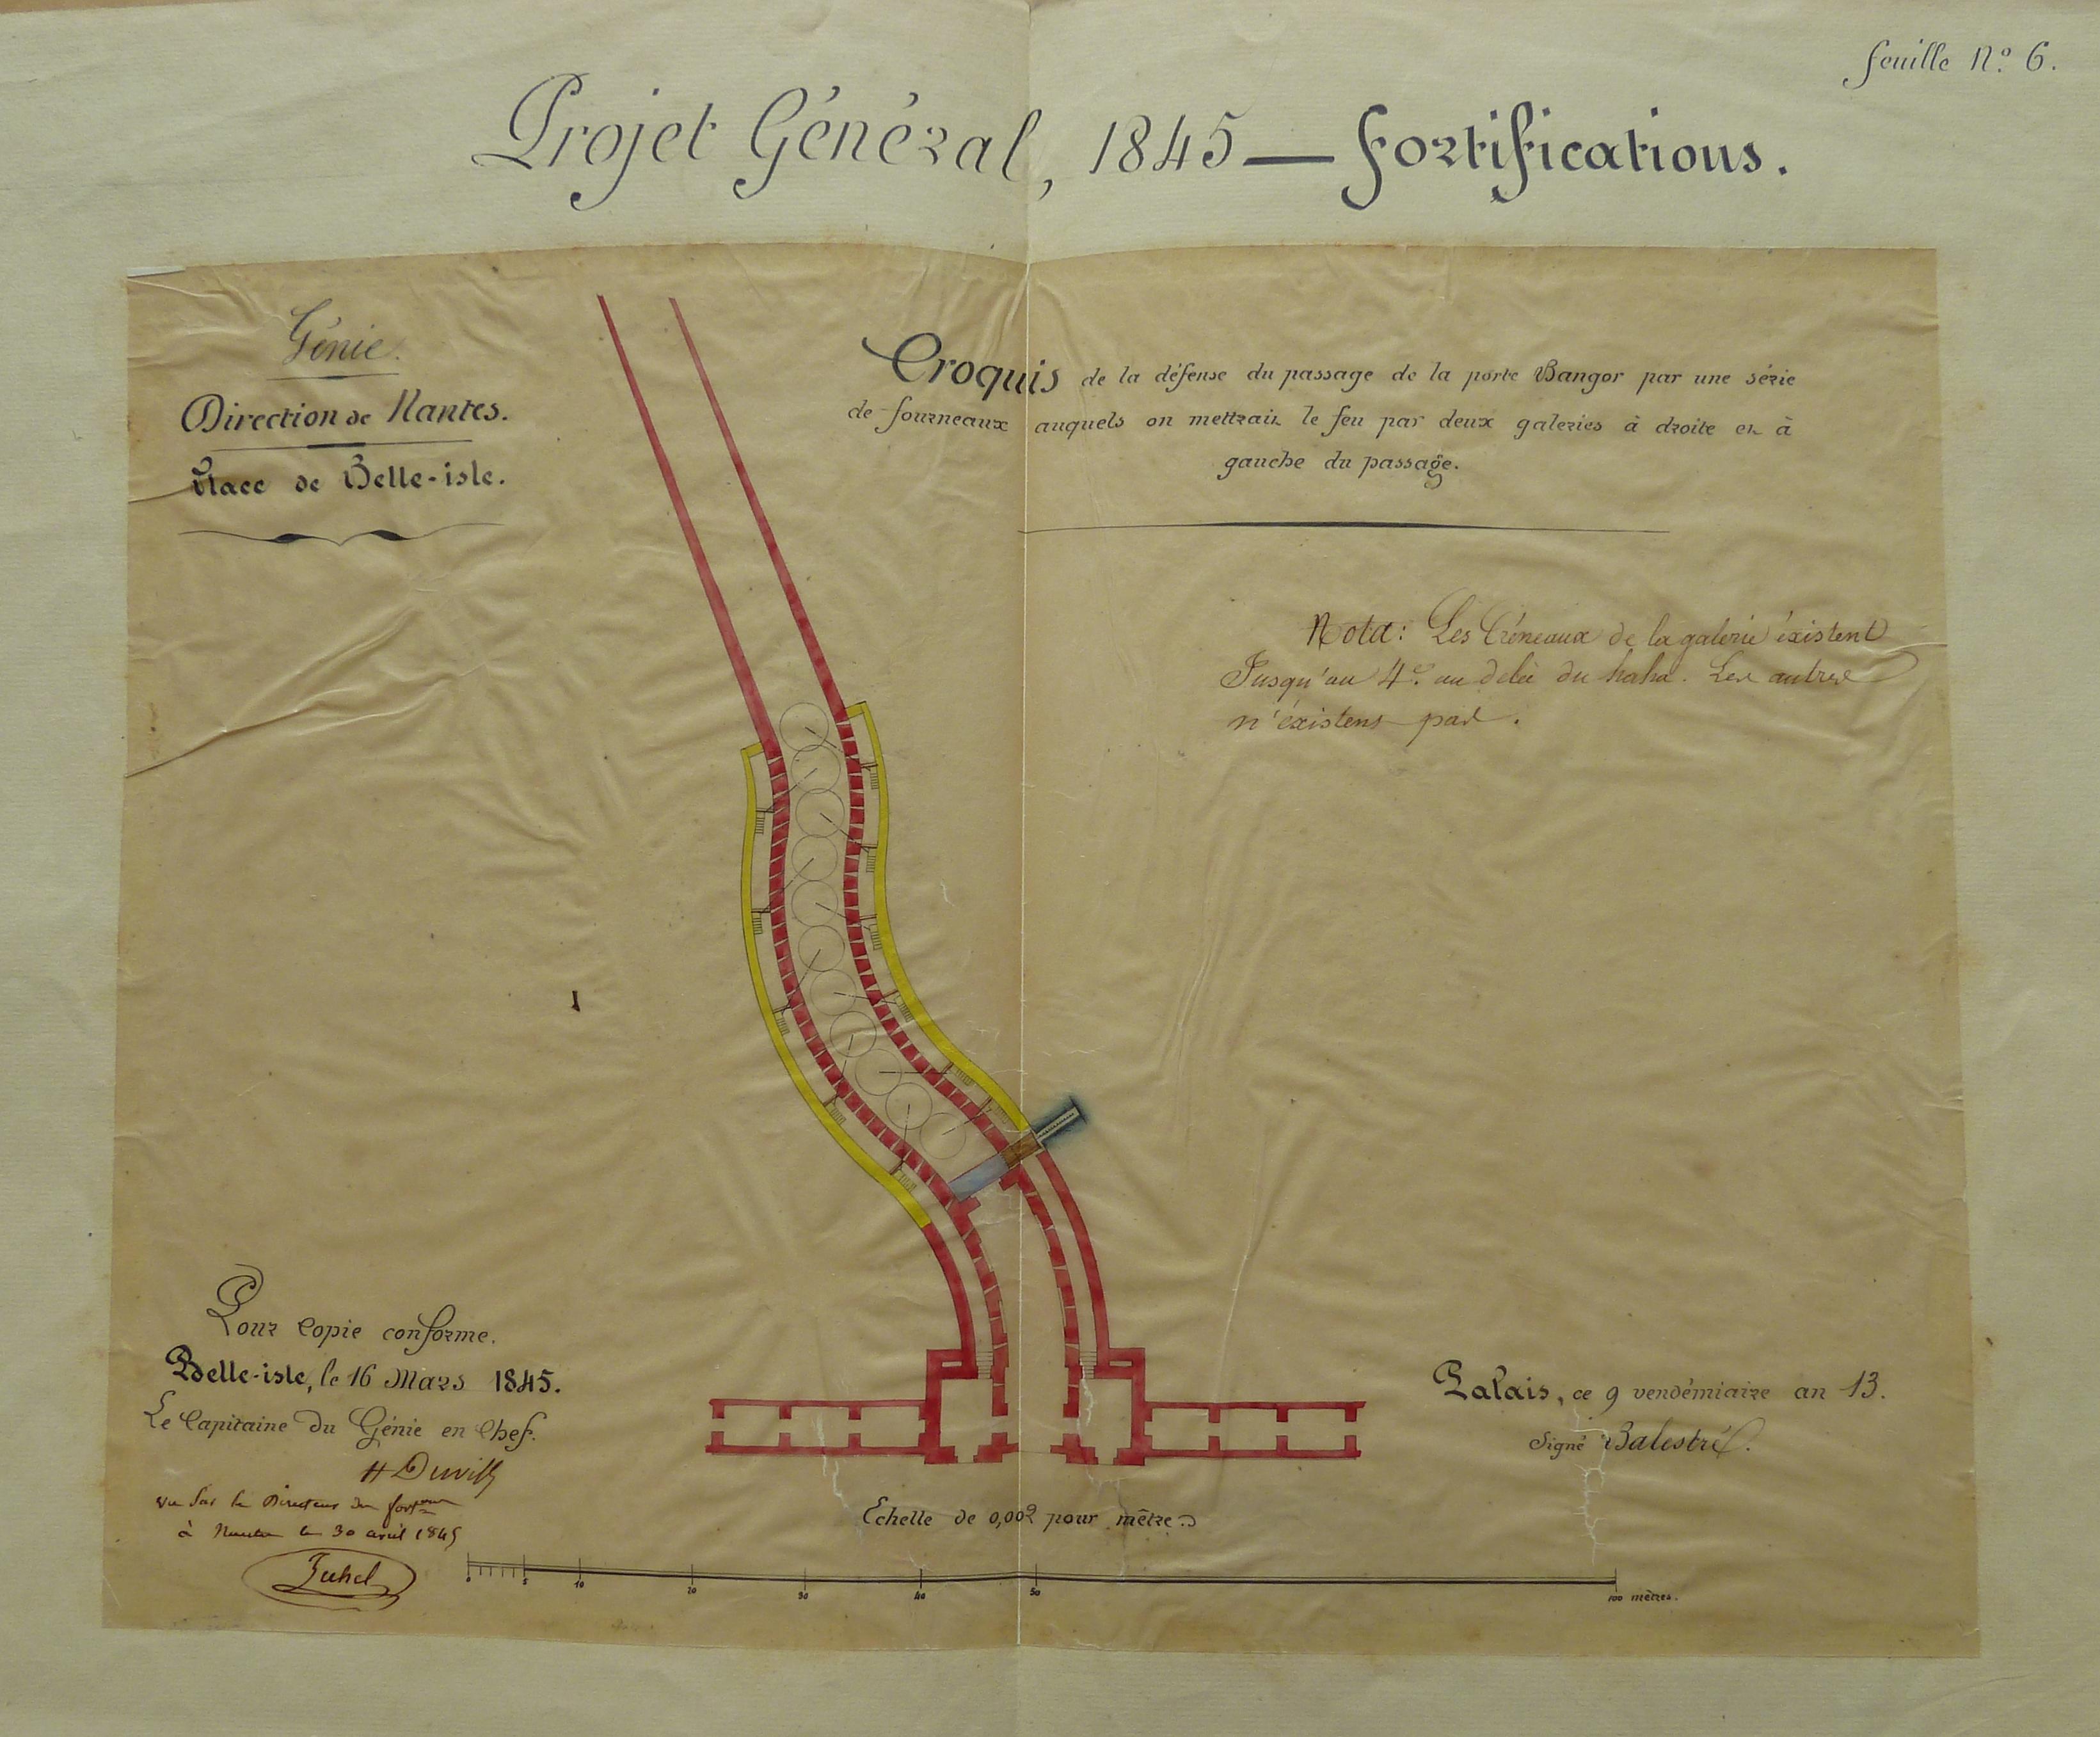 feuille N.º 6.
Projet Général, 1845 — fortifications.
Génie.
Direction de Nantes.
Place de Belle-isle.
Croquis de la défense du passage de la porte Bangor par une série
de fourneaux auquels on mettrait le feu par deux galeries à droite et à
gauche du passage.
Nota: Les Créneaux de la galerie éxistent
Jusqu'au 4e. au delà du haha. Les autres
n'éxistent pas.
Pour Copie conforme.
Belle-isle, le 16 Mars 1845.
Le Capitaine du Génie en Chef.
vu par le Directeur des
à Nantes le 30 avril 1845
Juhel
Palais, ce 9 vendémiaire an 13.
Signé Balestrié.
Echelle de 0,002 pour mètre.
0 5 10 20 30 40 50 100 mètres.